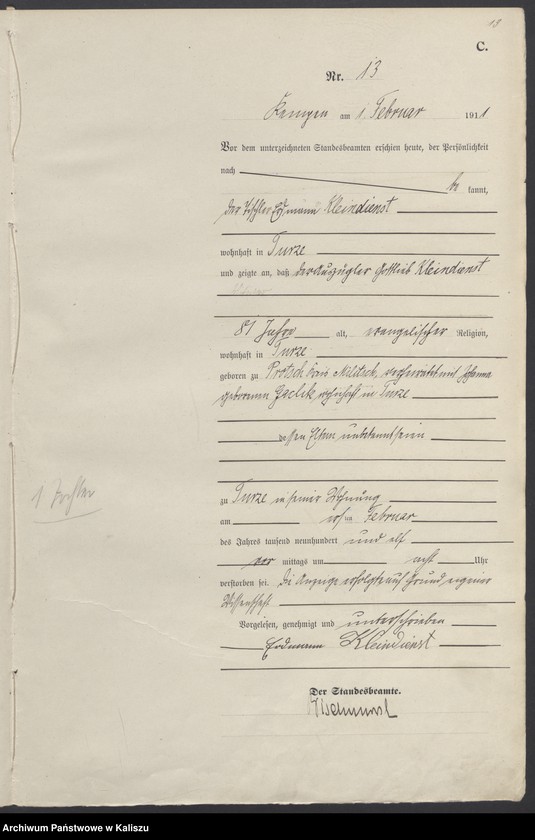 13
C.
Nr. 13
Kempen am 1. Februar 1911
Vor dem unterzeichneten Standesbeamten erschien heute, der Persönlichkeit
nach be kannt,
der Erdmann Kleindienst
wohnhaft in Turze
und zeigte an, daß der Auszügler Gottlieb Kleindienst
81 Jahre alt, evangelischer Religion,
wohnhaft in Turze
geboren zu Protsch Kreis Militsch, verheiratet mit Johanna
geborenen wohnhaft in Turze
dessen Eltern unbekannt sein
1 Tochter
zu Turze in seiner Wohnung
am ersten Februar
des Jahres tausend neunhundert und elf
vor mittags um acht Uhr
verstorben sei. Die Anzeige erfolgte auf Grund eigener
Wissenschaft
Vorgelesen, genehmigt und unterschrieben
Erdmann Kleindienst
Der Standesbeamte.
Archiwum Państwowe w Kaliszu